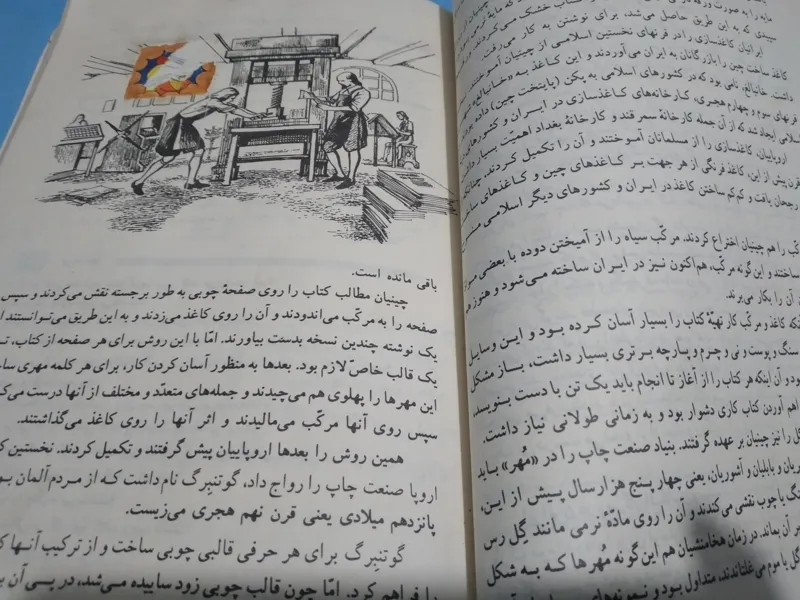 مایه را به صورت ورقه
سپیدی که به این طریق حاصل می‌شد، برای نوشتن به کار می‌رفت.
ایرانیان کاغذسازی را در قرنهای نخستین اسلامی از چینیان آموختند
کاغذ ساخت چین را بازرگانان به ایران می‌آوردند و این کاغذ به «خانبالغ»
داشت. خانبالغ، نامی بود که در کشورهای اسلامی به پکن (پایتخت چین) داده بودند
قرنهای سوم و چهارم هجری، کارخانه‌های کاغذسازی در ایران و کشورهای
اسلامی ایجاد شد که از آن جمله کارخانهٔ سمرقند و کارخانهٔ بغداد اهمیّت بسیار
اروپاییان، کاغذسازی را از مسلمانان آموختند و آن را تکمیل کردند. چنانکه
قرن پیش از این، کاغذ فرنگی از هر جهت بر کاغذهای چین و کاغذهای
رجحان یافت و کم‌کم ساختن کاغذ در ایران و کشورهای دیگر اسلامی
مرکّب را هم چینیان اختراع کردند. مرکّب سیاه را از آمیختن دوده با بعضی
ساختند و این گونه مرکّب، هم‌اکنون نیز در ایران ساخته می‌شود و هنوز هم
آن را بکار می‌برند.
کاغذ و مرکّب کار تهیّهٔ کتاب را بسیار آسان کرده بود و این وسایل
سنگ و پوست و نی و چرم و پارچه برتری بسیار داشت، باز مشکل
بود و آن اینکه هر کتاب را از آغاز تا انجام باید یک تن با دست بنویسد.
فراهم آوردن کتاب کاری دشوار بود و به زمانی طولانی نیاز داشت.
را نیز چینیان بر عهده گرفتند. بنیاد صنعت چاپ را در «مُهر» باید
و بابلیان و آشوریان، یعنی چهار پنج هزار سال پیش از این،
سنگ یا چوب نقشی می‌کندند و آن را روی مادّهٔ نرمی مانند گِل رس
بر آن بماند. در زمان هخامنشیان هم این گونه مُهرها که به شکل
گل یا موم می‌غلتاندند، متداول بود و نمونه‌های
باقی مانده است.
چینیان مطالب کتاب را روی صفحهٔ چوبی به طور برجسته نقش می‌کردند و سپس
صفحه را به مرکّب می‌اندودند و آن را روی کاغذ می‌زدند و به این طریق می‌توانستند از
یک نوشته چندین نسخه بدست بیاورند. امّا با این روش برای هر صفحه از کتاب،
یک قالب خاصّ لازم بود. بعدها به منظور آسان کردن کار، برای هر کلمه مهری
این مهرها را پهلوی هم می‌چیدند و جمله‌های متعدّد و مختلف از آنها درست می‌کردند
سپس روی آنها مرکّب می‌مالیدند و اثر آنها را روی کاغذ می‌گذاشتند.
همین روش را بعدها اروپاییان پیش گرفتند و تکمیل کردند. نخستین
اروپا صنعت چاپ را رواج داد، گوتنبرگ نام داشت که از مردم آلمان
پانزدهم میلادی یعنی قرن نهم هجری می‌زیست.
گوتنبرگ برای هر حرفی قالبی چوبی ساخت و از ترکیب آنها
را فراهم کرد. امّا چون قالب چوبی زود ساییده می‌شد، در پی آن